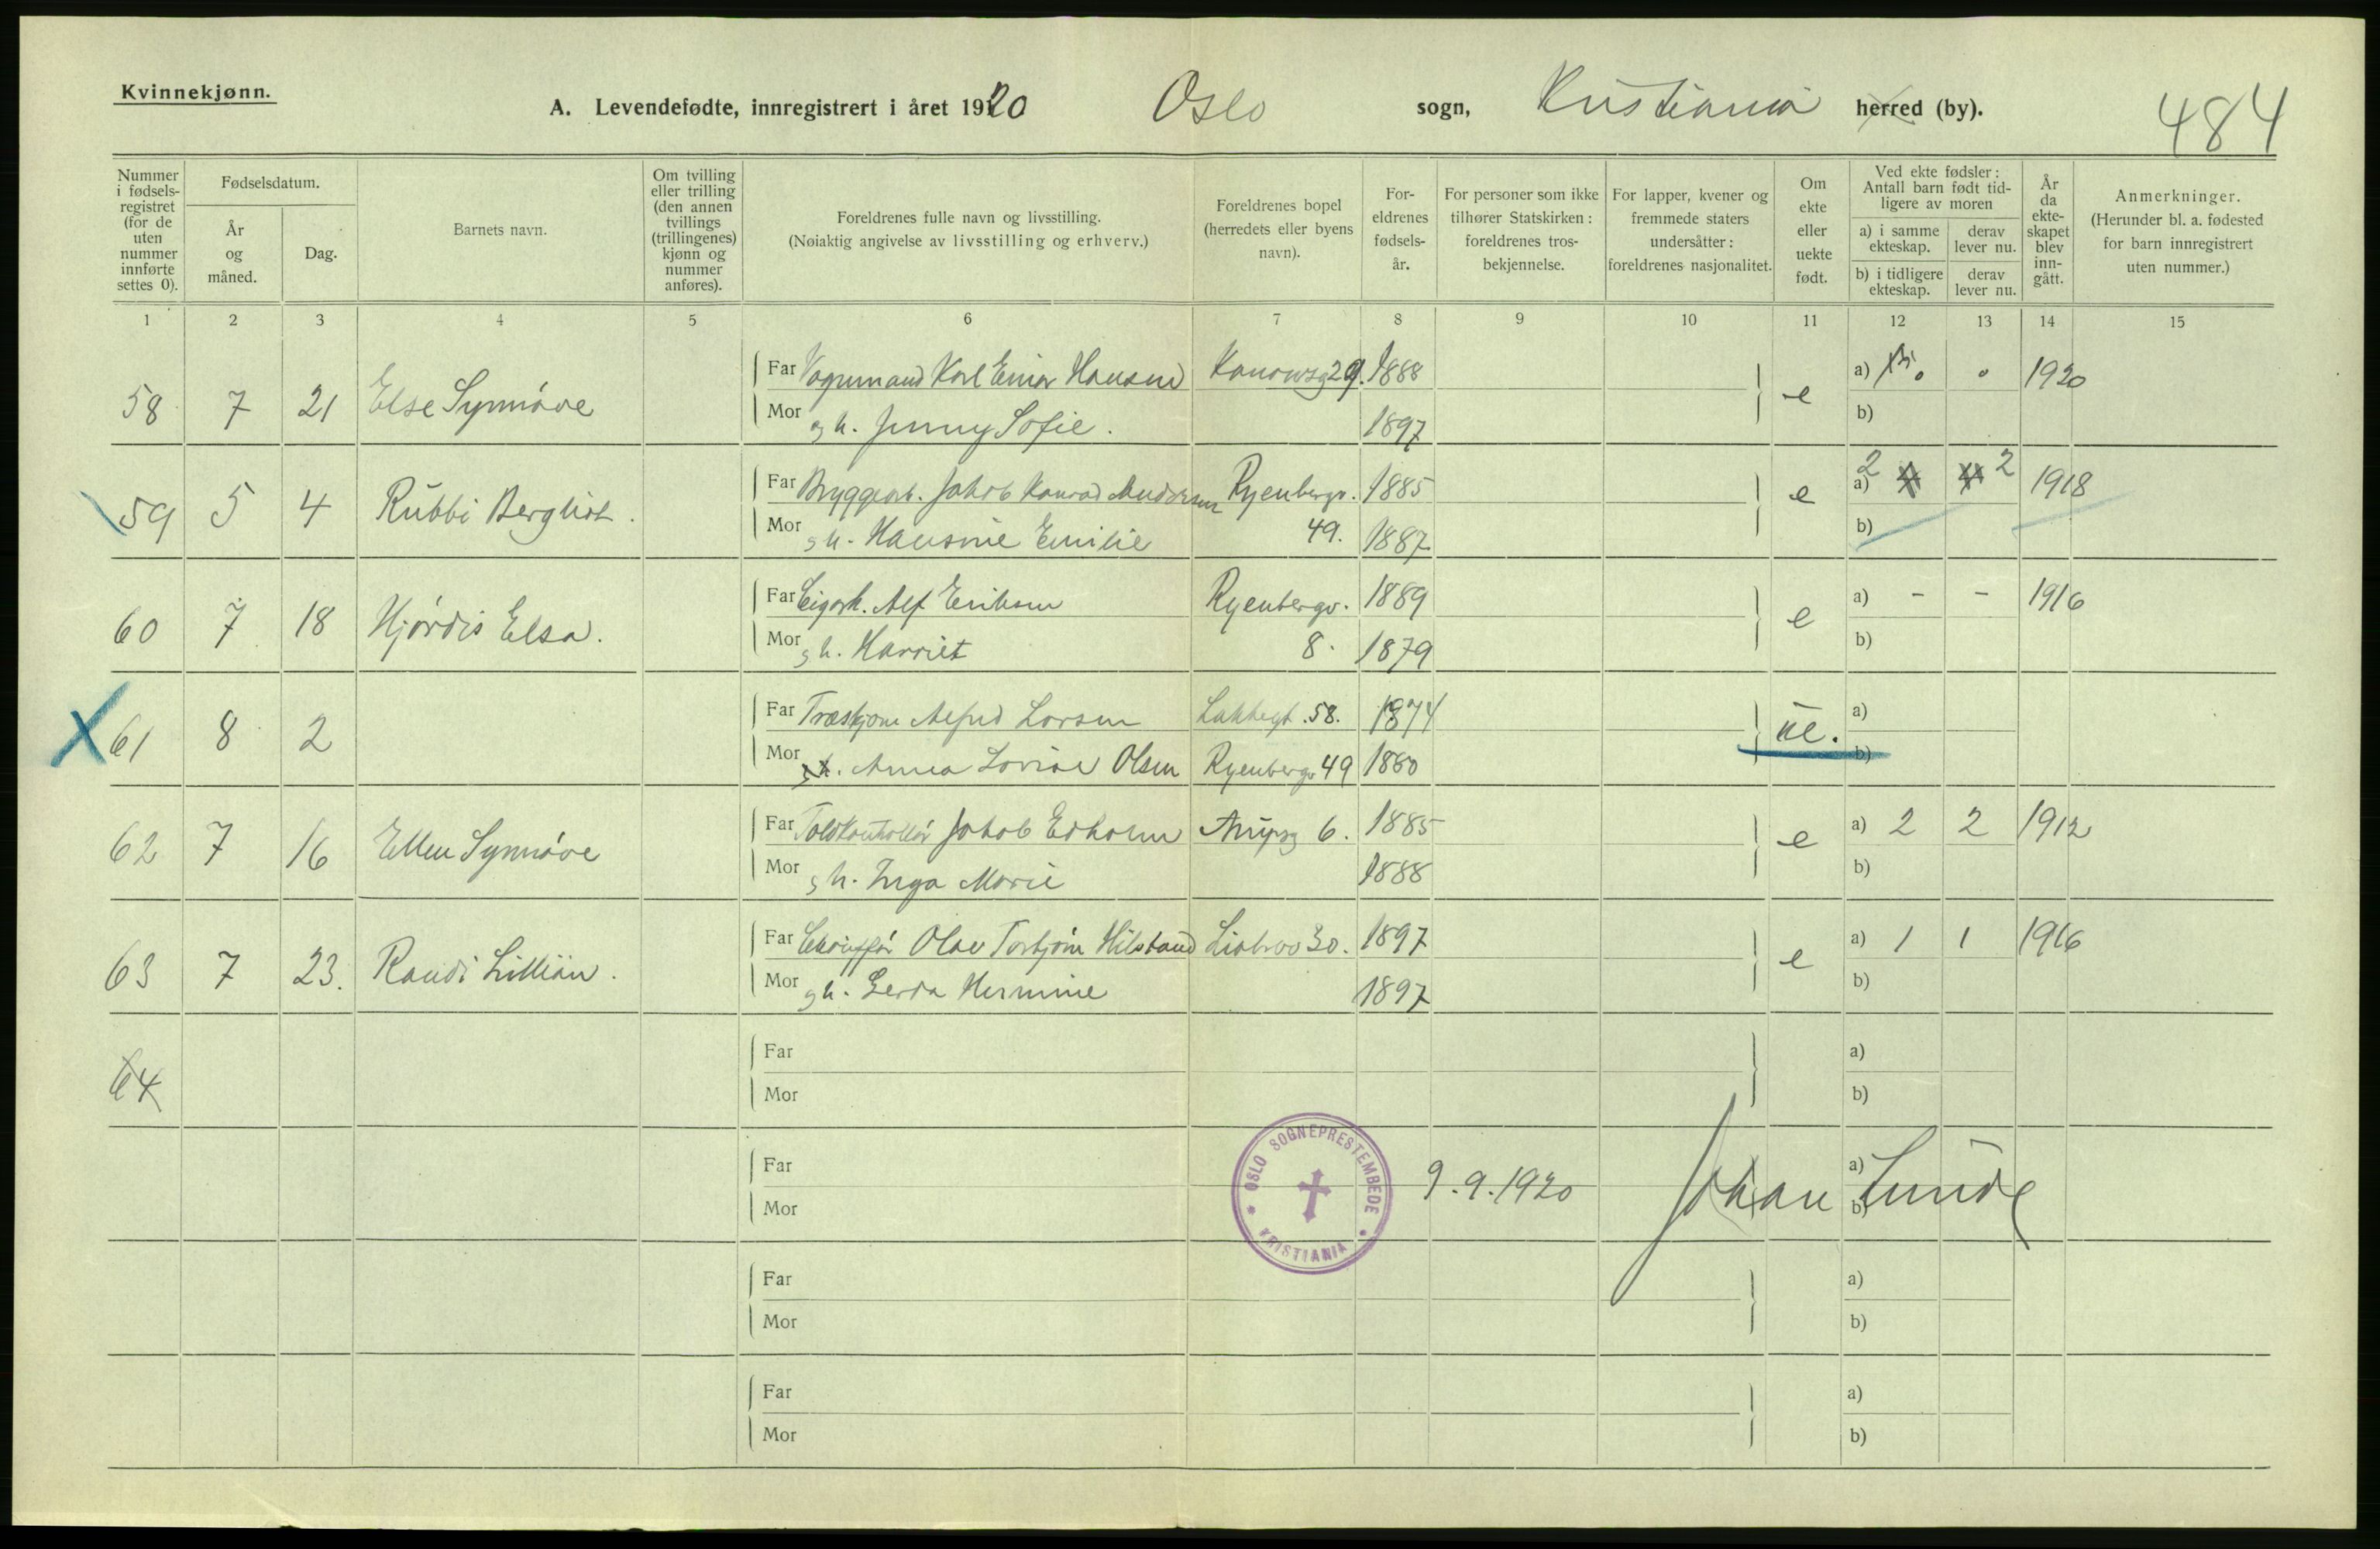 Kvinnekjønn.
A. Levendefødte, innregistrert i året 1920 Oslo sogn, Kristiania herred (by). 484
Nummer i fødsels-registret (for de uten nummer innførte settes 0).
Fødselsdatum.
År og måned.
Dag.
Barnets navn.
Om tvilling eller trilling (den annen tvillings (trillingenes) kjønn og nummer anføres).
Foreldrenes fulle navn og livsstilling.
(Nøiaktig angivelse av livsstilling og erhverv.)
Foreldrenes bopel (herredets eller byens navn).
For-eldrenes fødsels-år.
For personer som ikke tilhører Statskirken: foreldrenes tros-bekjennelse.
For lapper, kvener og fremmede staters undersåtter: foreldrenes nasjonalitet.
Om ekte eller uekte født.
Ved ekte fødsler: Antall barn født tid-ligere av moren
a) i samme ekteskap.
derav lever nu.
b) i tidligere ekteskap.
derav lever nu.
År da ekte-skapet blev inn-gått.
Anmerkninger.
(Herunder bl. a. fødested for barn innregistrert uten nummer.)
1 2 3 4 5 6 7 8 9 10 11 12 13 14 15
58 7 21 Else Synnöve Far Vognmand Karl Einar Hansen 29. 1888 e a) 0 0 1920
Mor g h. Jenny Sofie. 1897 b)
59 5 4 Rubbi Bergliot. Far Bryggearb. Jakob Konrad Andersen Ryenbergv. 1885 e a) 2 2 1918
Mor g h. Hansine Emilie 49. 1887 b)
60 7 18 Hjördis Elsa. Far Alf Eriksen Ryenbergv. 1889 e a) - - 1916
Mor g h. Harriet 8. 1879 b)
61 8 2 Far Alfred Larsen Lakkegt. 58. 1874 ue. a)
Mor Anna Lovise Olsen Ryenbergv 49 1880 b)
62 7 16 Ellen Synnöve Far Toldkontrollör Jakob Edholm Arupsg 6. 1885 e a) 2 2 1912
Mor g h. Inga Marie 1888 b)
63 7 23. Randi Lillian. Far Chaufför Olav Torbjörn Hilstand Liabrov 30. 1897 e a) 1 1 1916
Mor g h. Gerda Hermine 1897 b)
64 Far a)
Mor b)
Far a)
OSLO SOGNEPRESTEMBEDE * KRISTIANIA *
9.9.1920 Johan Lunde
Mor b)
Far a)
Mor b)
Far a)
Mor b)